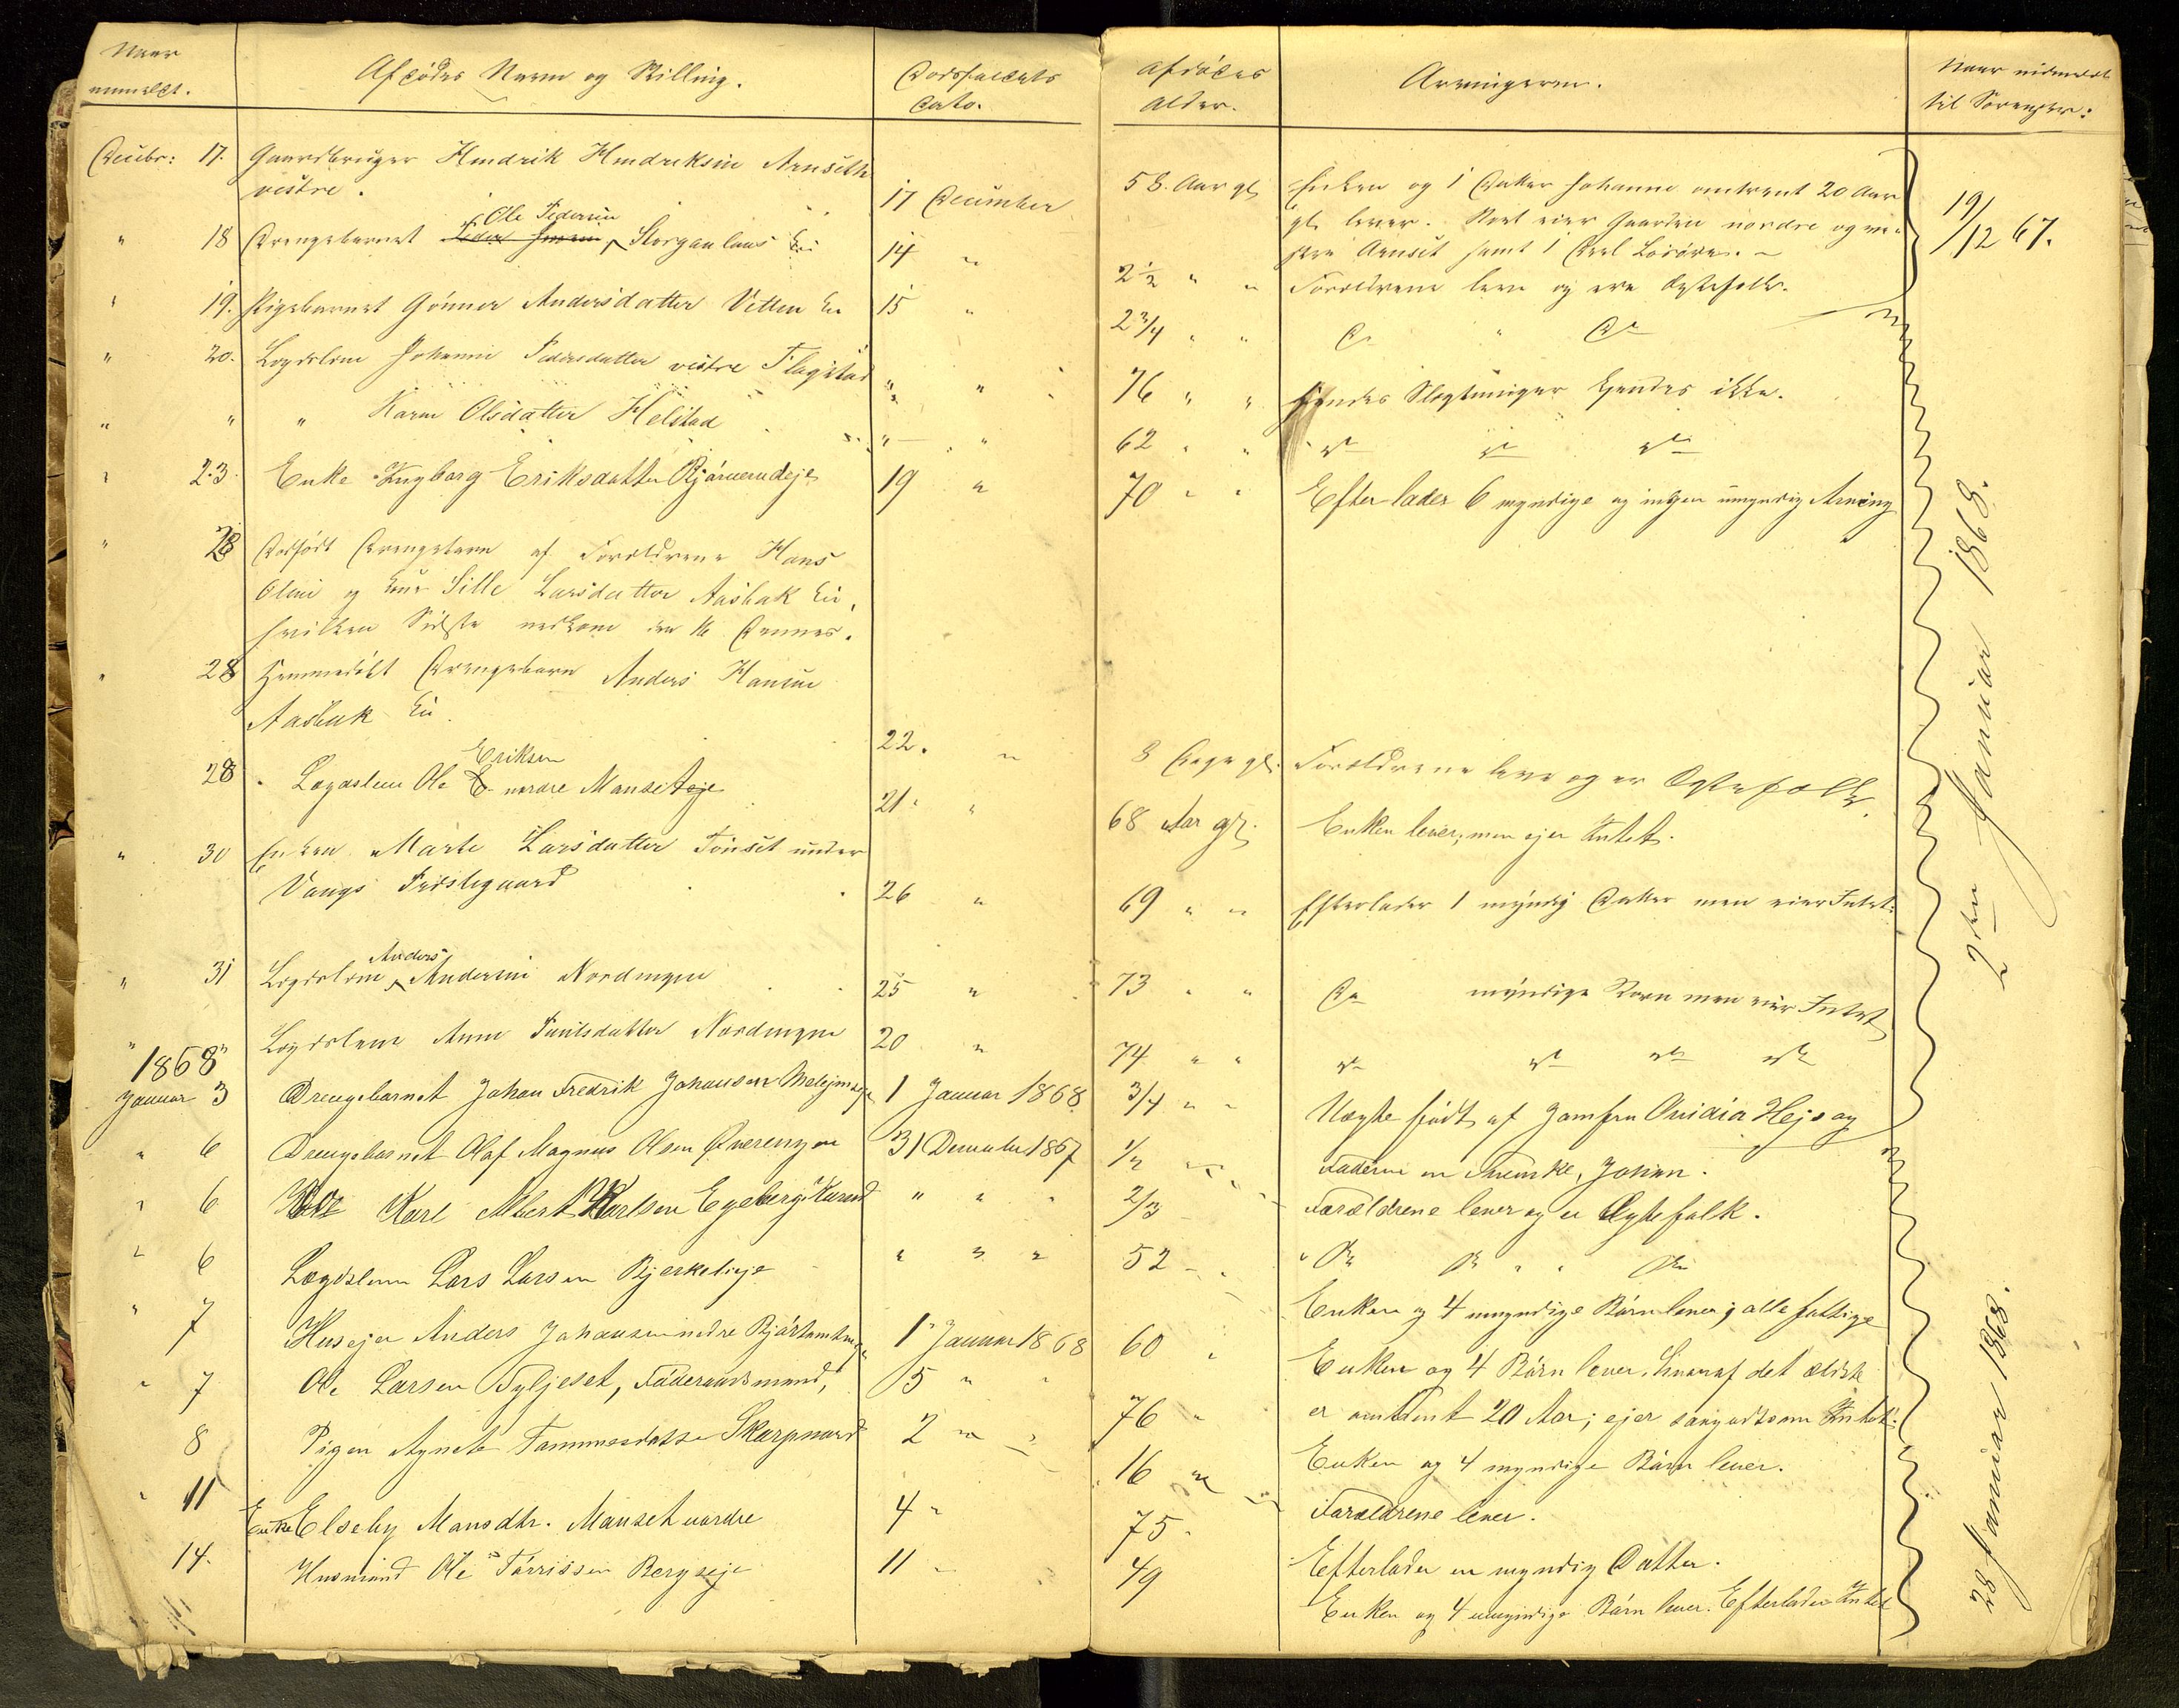 Naar
anmeldt.
Afdødes Navn og Stilling.
Dødsfaldets
Dato.
Decbr: 17. Gaardbruger Hendrik Hendriksen Arnseth
vestre.
17 December
" 18 Drengebarnet Ole Pedersen Storganlaus Eie
14 "
" 19. Pigebarnet Gönner Andersdatter Vetten Eie 15 "
" 20. Lægdslem Johanne Pedersdatter vestre Flagstad " "
" " " Karen Olsdatter Helstad " "
" 23. Enke Ingborg Eriksdatter Bjørnerudeje 19 "
" 28 Dødfødt Drengebarn af Forældrene Hans
Olsen og Sille Larsdatter Aasbak Eie,
hvilken Sidste nedkom den 16 Dennes.
" 28 Hjemmedöbt Drengebarn Anders Hansen
Aasbak Eie
22. "
28 Eriksen
Lægdslem Ole nordre Manseteje
21. "
" 30 Enken Marte Larsdatter Tönset under
Vangs Præstegaard 26 "
" 31 Anders
Lægdslem Andersen Nordengen 25 "
" " Lægdslem Anne Poulsdatter Nordengen 20 "
1868
Januar 3 Drengebarnet Johan Fredrik Johansen 1 Januar 1868
" 6 Drengebarnet Olaf Magnus Olsen 31 December 1867
" 6 Karl Albert Karlsen Egeberg " " "
" 6 Lægdslem Lars Larsen Bjerkelieje " " "
" 7 Husejer Anders Johansen nedre 1 Januar 1868
" 7 Ole Larsen Syljeset, Føderaadsmand, 5 " "
8 Pigen Agnete Tommesdatter Skarpnord 2 " "
" 11 Enke Elseby Monsdtr. Manset nordre 4 "
14. Husmand Ole Tørrissen Bergseje 11 "
Afdødes
Alder.
Arvingerne.
Naar indmeldt
til Sorenskr:
58. Aar gl Enken og 1 Datter Johanne omtrent 20 Aar
gl. lever. Boet eier Gaarden nordre og ve-
stre Arnset samt 1 Deel Løsøre.
19/12 67.
2 1/2 " " Forældrene leve og ere Ægtefolk.
2 3/4 " " Do " Do
76 " " Hendes Slægtninger kjendes ikke.
62 " " do do do
70 " " Efterlader 6 myndige og ingen umyndig Arving
8 Dage gl. Forældrene leve og er Ægtefolk.
68 Aar gl. Enken lever, men ejer Intet.
69 " " Efterlader 1 myndig Datter men eier Intet.
73 " " Do myndige Børn men eier Intet
74 " " do do do do
3/4 " " Uægte født af Jomfru Ovidia Hejs og
1/2 " " Faderen en Svenske, Johan.
2/3 " Forældrene lever og er Ægtefolk.
52 " " Do Do " " Do
Enken og 4 umyndige Børn lever; alle fattige
60 " Enken og 4 Børn lever, hvoraf det ældste
er omtrent 20 Aar; ejer saagodtsom Intet.
76 " Enken og 4 myndige Børn lever.
16 " Forældrene lever.
75 " Efterlader en myndig Datter.
49 Enken og 4 umyndige Børn lever. Efterlader Intet
2den Januar 1868.
28 Januar 1868.